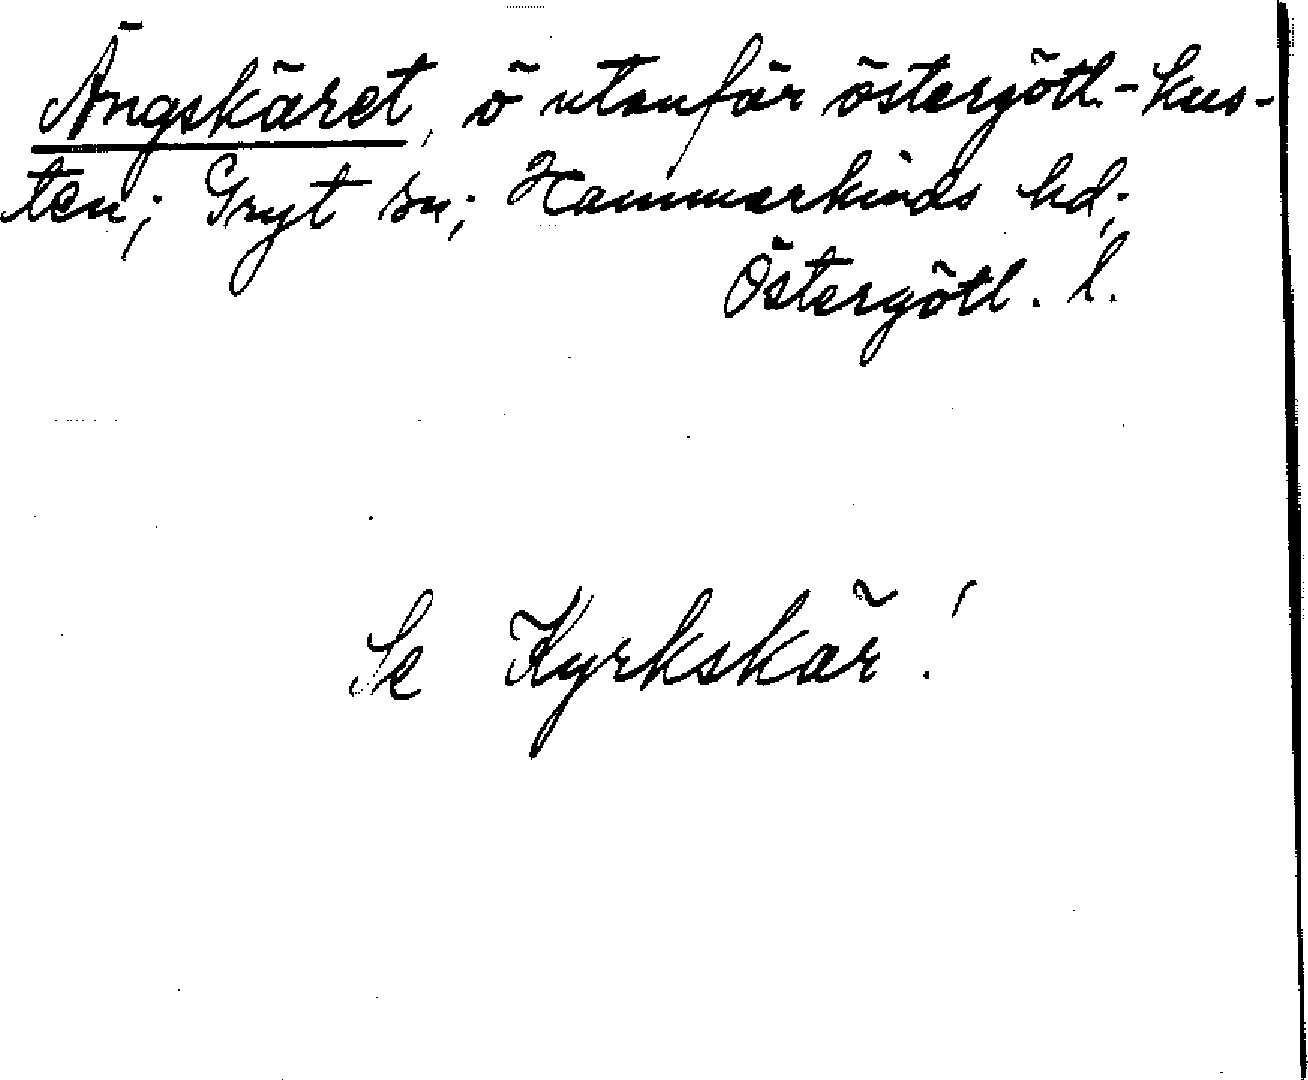 Ängskäret, ö utanför östergötl.-kus-
ten; Gryt sn; Hammarkinds hd;
Östergötl. l.
Se Kyrkskär!